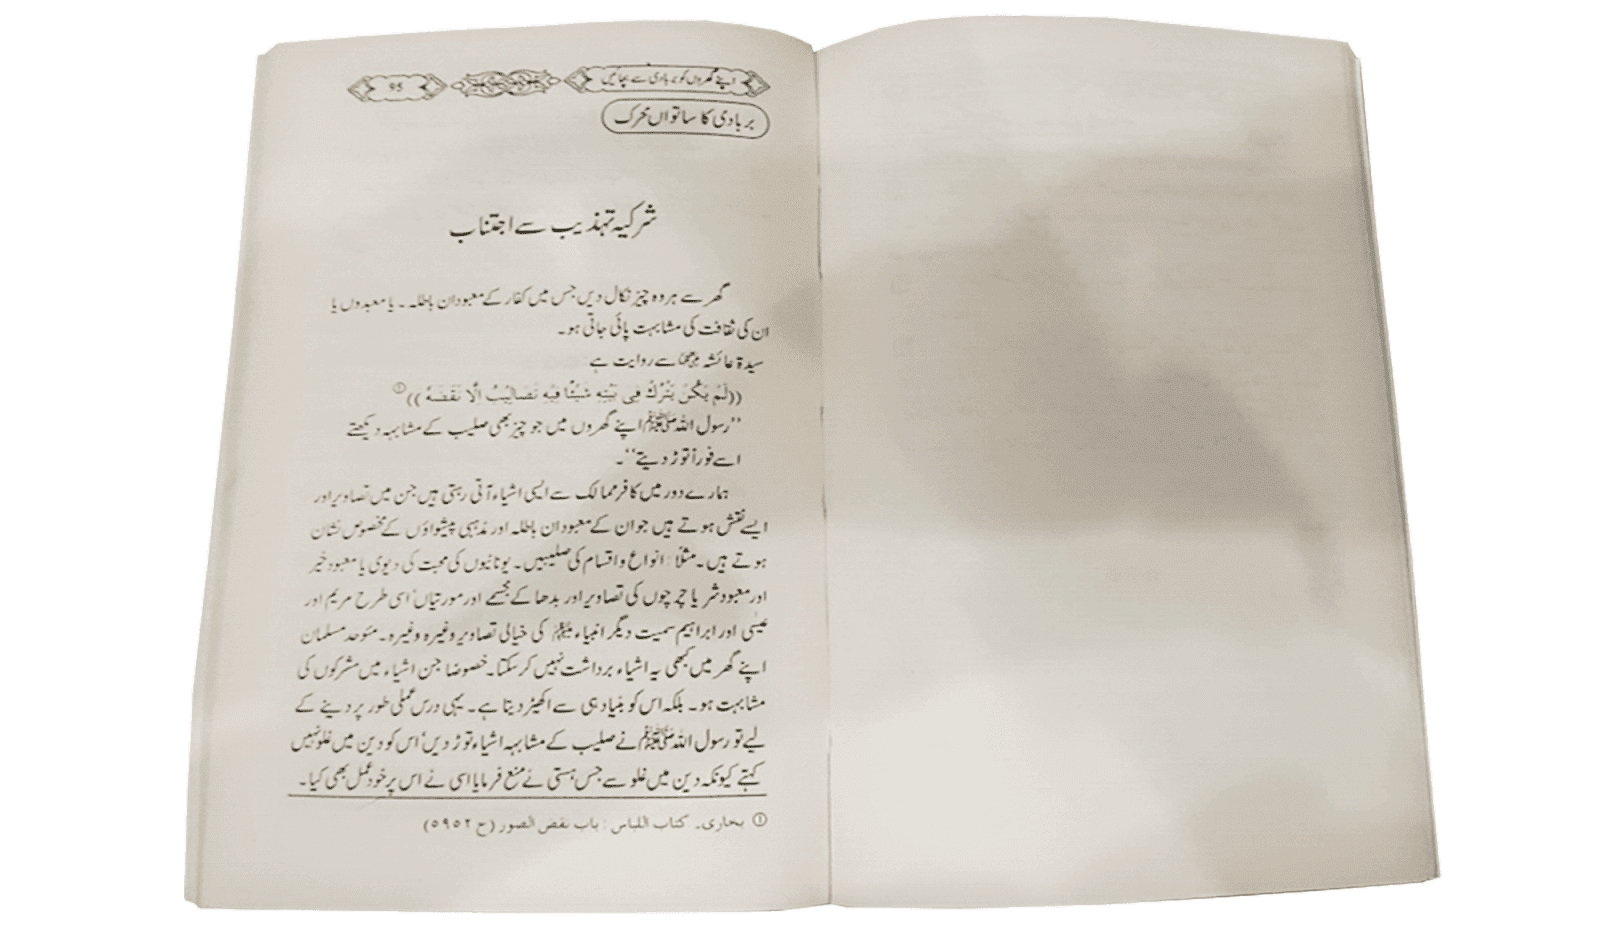 اپنے گھروں کو بربادی سے بچائیں 95
بربادی کا ساتواں محرک
شرکیہ تہذیب سے اجتناب
گھر سے ہر وہ چیز نکال دیں جس میں کفار کے معبودان باطلہ۔ یا معبدوں یا
ان کی ثقافت کی مشابہت پائی جاتی ہو۔
سیدۃ عائشہ رضی اللہ عنہا سے روایت ہے:
((لَمْ يَكُنْ يَتْرُكُ فِي بَيْتِهِ شَيْئًا فِيْهِ تَصَالِيْبُ اِلَّا نَقَضَهُ)) ①
’’رسول اللہ ﷺ اپنے گھروں میں جو چیز بھی صلیب کے مشابہہ دیکھتے
اسے فوراً توڑ دیتے‘‘۔
ہمارے دور میں کافر ممالک سے ایسی اشیاء آتی رہتی ہیں جن میں تصاویر اور
ایسے نقش ہوتے ہیں جو ان کے معبودان باطلہ اور مذہبی پیشواؤں کے مخصوص نشان
ہوتے ہیں۔ مثلاً: انواع و اقسام کی صلیبیں۔ یونانیوں کی محبت کی دیوی یا معبود خیر
اور معبود شر یا چرچوں کی تصاویر اور بدھا کے مجسمے اور مورتیاں‘ اسی طرح مریم اور
عیسٰی اور ابراہیم سمیت دیگر انبیاء علیہم السلام کی خیالی تصاویر وغیرہ وغیرہ۔ موحد مسلمان
اپنے گھر میں کبھی یہ اشیاء برداشت نہیں کر سکتا۔ خصوصا جن اشیاء میں مشرکوں کی
مشابہت ہو۔ بلکہ اس کو بنیاد ہی سے اکھیڑ دیتا ہے۔ یہی درس عملی طور پر دینے کے
لیے تو رسول اللہ ﷺ نے صلیب کے مشابہہ اشیاء توڑ دیں‘ اس کو دین میں غلو نہیں
کہتے کیونکہ دین میں غلو سے جس ہستی نے منع فرمایا اسی نے اس پر خود عمل بھی کیا۔
① بخاری۔ کتاب اللباس: باب نقض الصور (ح ٥٩٥٢)